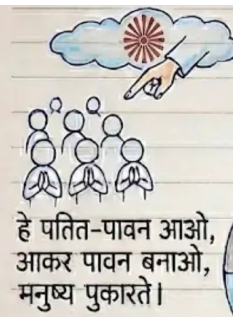 हे पतित-पावन आओ,
आकर पावन बनाओ,
मनुष्य पुकारते।